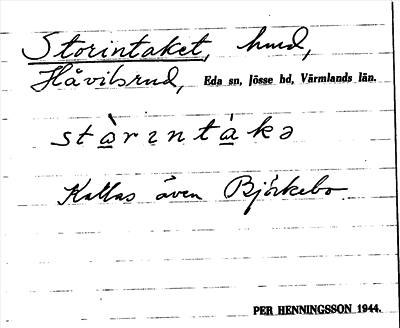 Storintaket, hmd,
Håvilsrud, Eda sn, Jösse hd, Värmlands län.
stàrintàkə
Kallas även Björkebo
PER HENNINGSSON 1944.